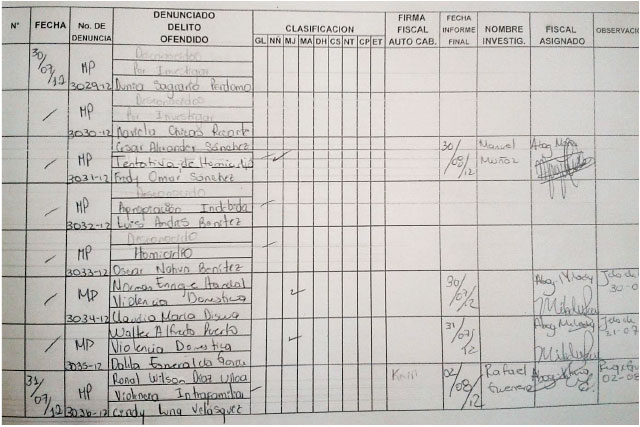 N° FECHA No. DE DENUNCIA DENUNCIADO DELITO OFENDIDO CLASIFICACION FIRMA FISCAL AUTO CAB. FECHA INFORME FINAL NOMBRE INVESTIG. FISCAL ASIGNADO OBSERVACIO
GL NÑ MJ MA DH CS NT CP ET
30/07/12 MP 3029-12
Desconocido
Por Investigar
Dunia Sagrario Perdomo
/ MP 3030-12
Desconocido
Por Investigar
/ MP 3031-12
Cesar Alexander Sánchez
Tentativa de Homicidio
Fredy Omar Sánchez
30/08/12 Manuel Muñoz Abog
/ MP 3032-12
Desconocido
Apropiación Indebida
Luis Andres Benítez
/ MP 3033-12
Desconocido
Homicidio
Oscar Nahun Benítez
/ MP 3034-12
Enrique
Violencia Domestica
Claudia Maria
30/07/12 Abog. Jdo de 30-0
/ MP 3035-12
Walter Alfredo Puerto
Violencia Domestica
Esmeralda
31/07/12 Abog Jdo de 31-07
31/07/12 MP 3036-12
Ronal Wilson Diaz
Intrafamiliar
Cindy Luna Velasquez
02/08/12 Rafael 02-08